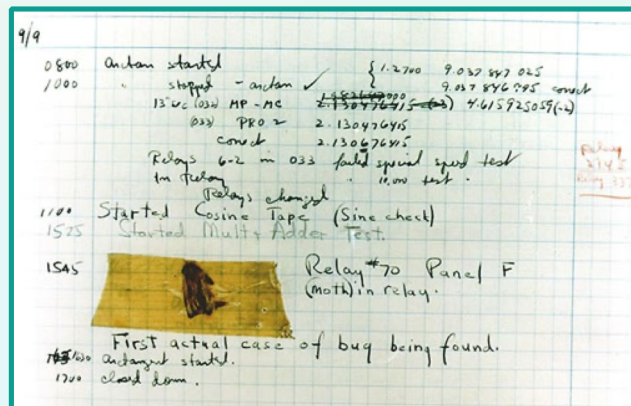 9/9
0800 arctan started { 1.2700 9.037 847 025
1000 " stopped - arctan ✓ 9.037 846 795 correct
13"uc (032) MP-MC 2.130476415 4.615925059(-2)
(033) PRO 2 2.130476415
correct 2.130676415
Relays 6-2 in 033 failed special speed test
in relay " 10,000 test.
Relays changed
1100 Started Cosine Tape (Sine check)
1525 Started Mult+Adder Test.
1545 Relay #70 Panel F
(moth) in relay.
First actual case of bug being found.
1630 arctangent started.
1700 closed down.
Relay